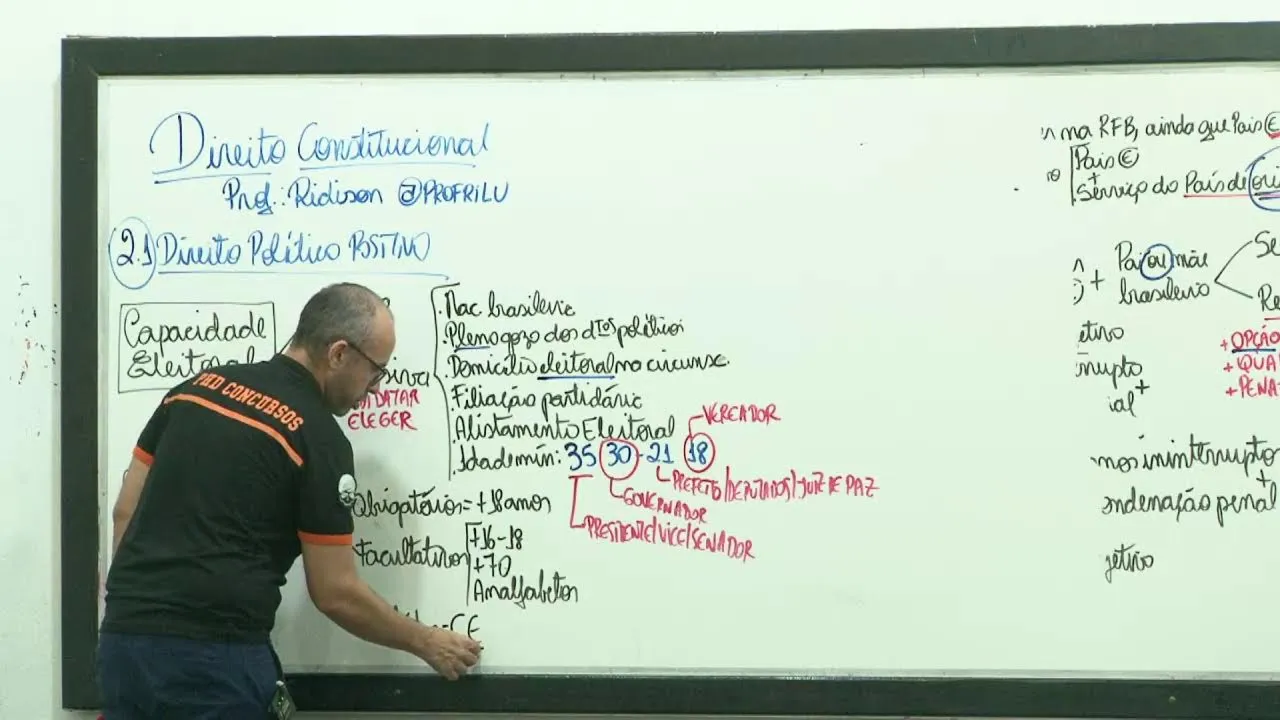 Direito Constitucional
Prof.: Ridison @PROFRILU
2.1 Direito Político POSITIVO
Capacidade
Eleitoral
ELEGER
. Nac brasileira
. Pleno gozo dos dtos políticos
. Domicílio eleitoral na circunsc.
. Filiação partidária
. Alistamento Eleitoral
. Idade mín: 35 30 - 21 18
VEREADOR
PREFEITO/DEPUTADOS/JUIZ DE PAZ
GOVERNADOR
PRESIDENTE/VICE/SENADOR
Obrigatórios = + 18 anos
Facultativos +16-18
+70
Analfabetos
= CE
PHD CONCURSOS
na RFB, ainda que Pais E
Pais E
+
Serviço do País de ori
+ Pai ou mãe
brasileiro
Se
Re
etivo
+ OPÇÃO
rrupto
+ QUA
ial +
+ PENA
nos ininterrupto
+
ondenação penal
jetivo